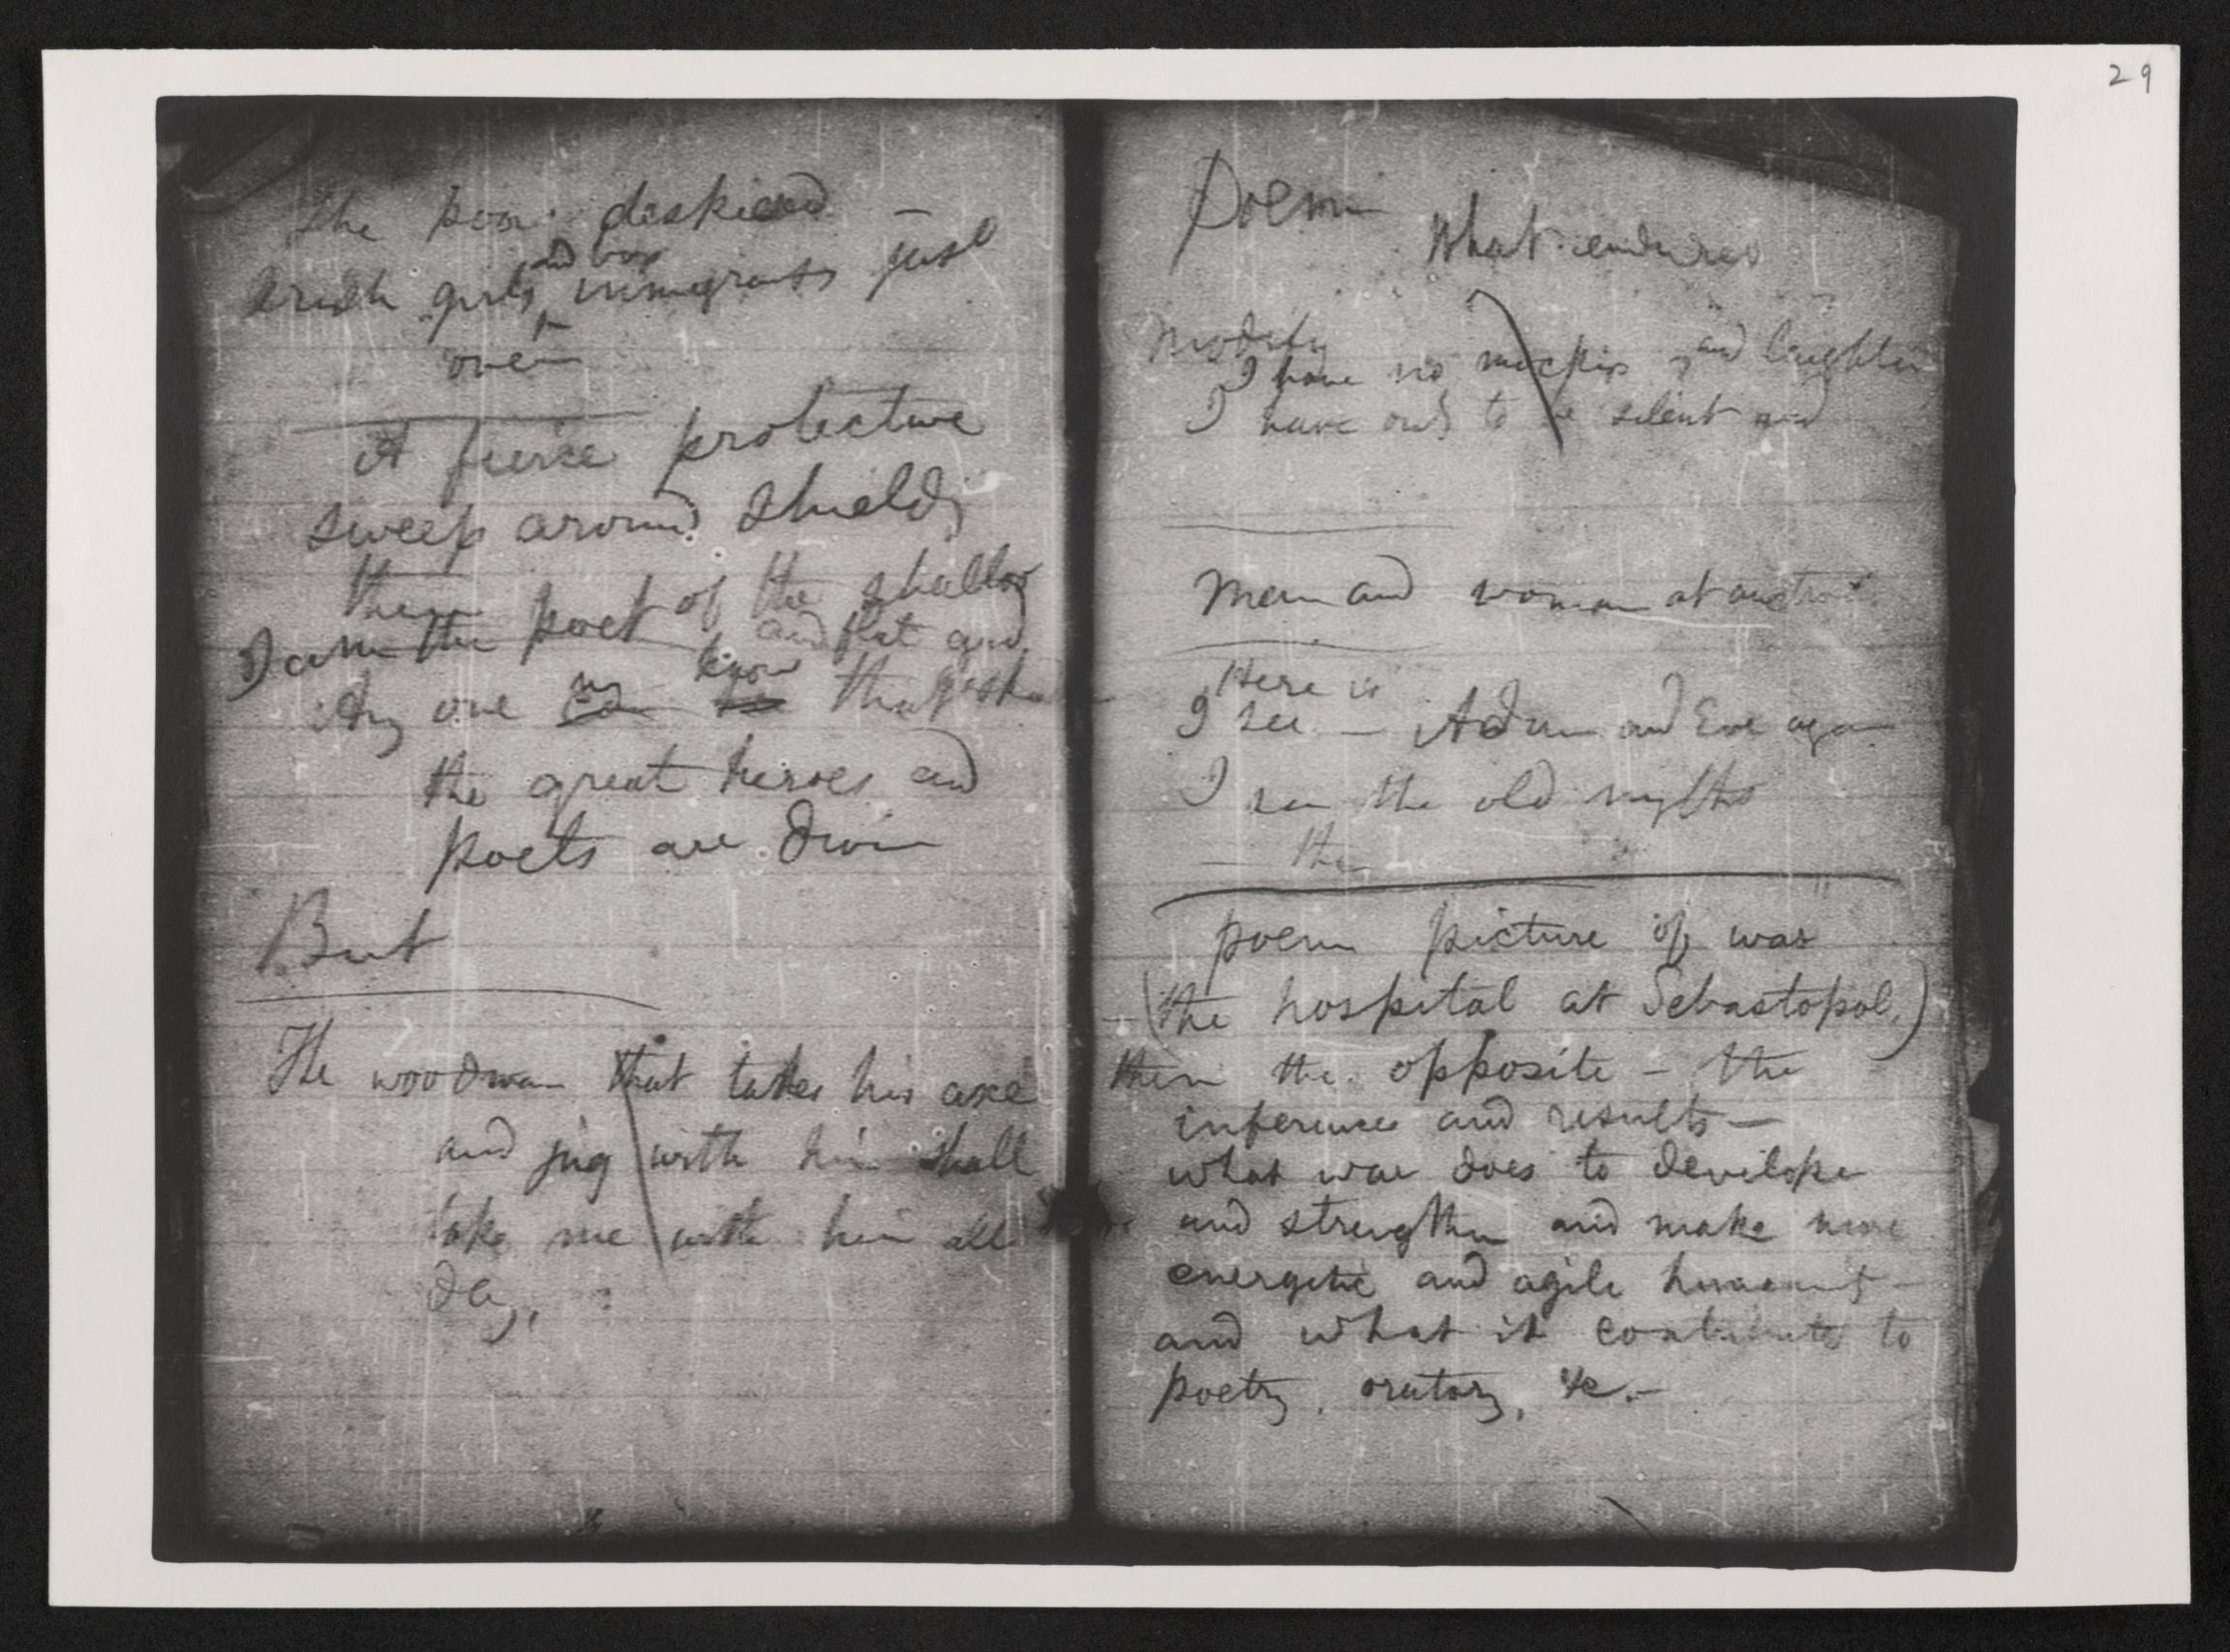 29
The poor despised
Irish girls and boys immigrants just
over
A fierce protective
sweep around shields
them
I am the poet of the shallow
and flat and
Any one may know that
the great heroes and
poets are divine
But
The woodman that takes his axe
and jug with him shall
take me with him all
day,
Poem
What endures
Modify
I have no and laughter
I have only to be silent and
Man and woman at auction
Here is
I see — Adam and Eve again
I see the old myths
— the
poem picture of war
(the hospital at Sebastopol,)
then the opposite — the
inferences and results —
what war does to develope
and strengthen and make more
energetic and agile humanity —
and what it contributes to
poetry, oratory, &c. —